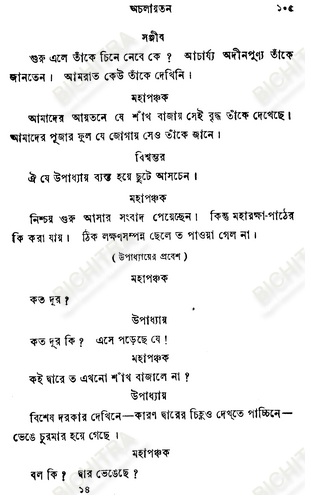 অচলায়তন ১০৫
সঞ্জীব
গুরু এলে তাঁকে চিনে নেবে কে ? আচার্য্য অদীনপুণ্য তাঁকে
জানতেন। আমরাত কেউ তাঁকে দেখিনি।
মহাপঞ্চক
আমাদের আয়তনে যে শাঁখ বাজায় সেই বৃদ্ধ তাঁকে দেখেছে।
আমাদের পূজার ফুল যে জোগায় সেও তাঁকে জানে।
বিশ্বম্ভর
ঐ যে উপাধ্যায় ব্যস্ত হয়ে ছুটে আসচেন।
মহাপঞ্চক
নিশ্চয় গুরু আসার সংবাদ পেয়েছেন। কিন্তু মহারক্ষা-পাঠের
কি করা যায়। ঠিক লক্ষণসম্পন্ন ছেলে ত পাওয়া গেল না।
( উপাধ্যায়ের প্রবেশ )
মহাপঞ্চক
কত দূর ?
উপাধ্যায়
কত দূর কি ? এসে পড়েছে যে !
মহাপঞ্চক
কই দ্বারে ত এখনো শাঁখ বাজালে না ?
উপাধ্যায়
বিশেষ দরকার দেখিনে—কারণ দ্বারের চিহ্নও দেখ্‌তে পাচ্চিনে—
ভেঙে চুরমার হয়ে গেছে।
মহাপঞ্চক
বল কি ? দ্বার ভেঙেছে ?
১৪
BICHITRA